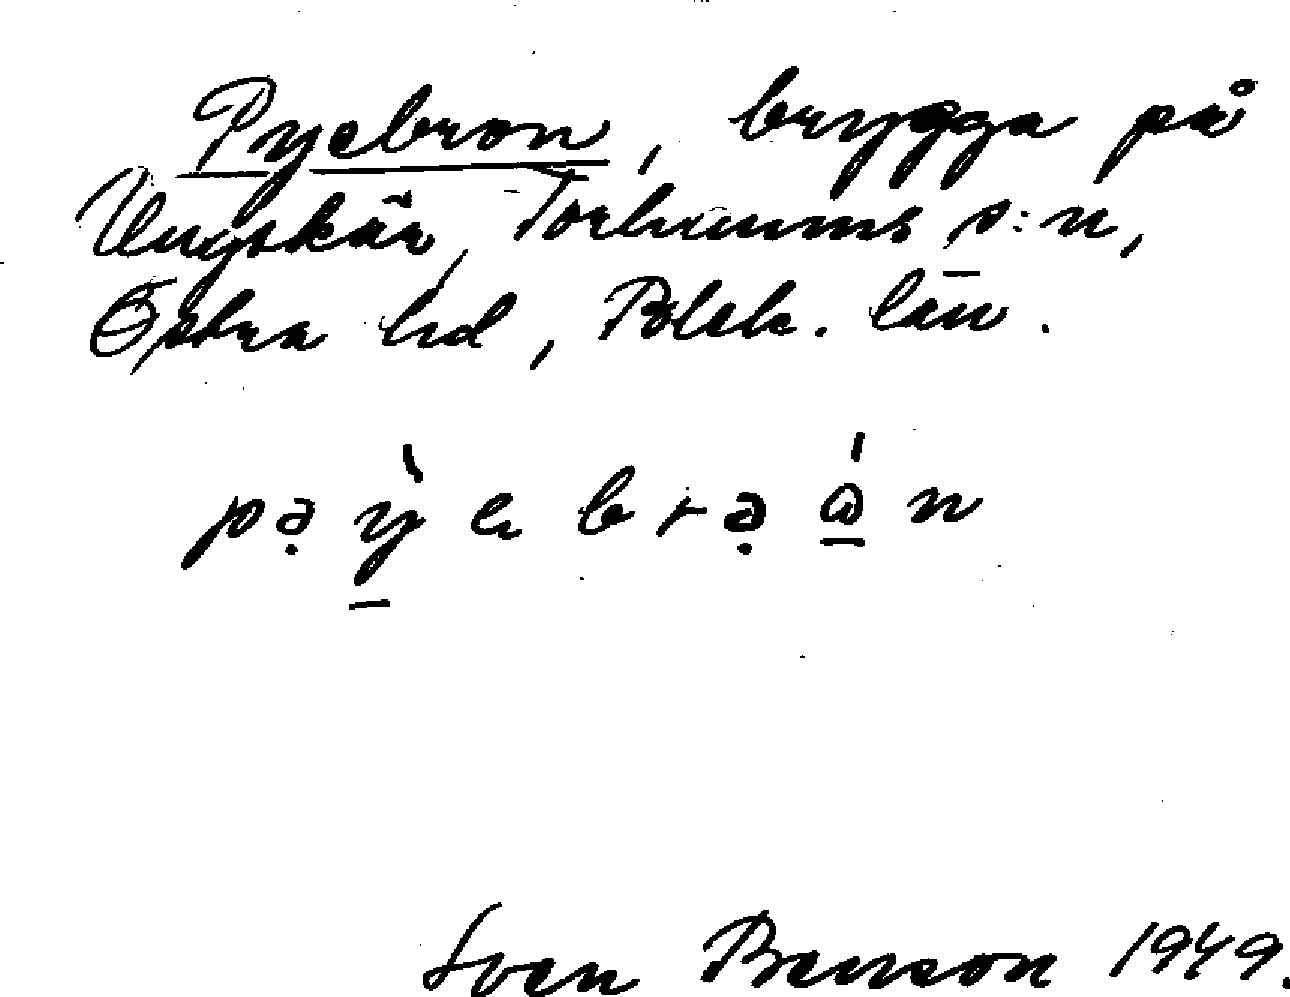 Pyebron, brygga på
Ungskär, Torhamns s:n,
Östra hd, Blek. län.
pə̣ỳ̱ebrə̣ά̱n
Sven Benson 1949.